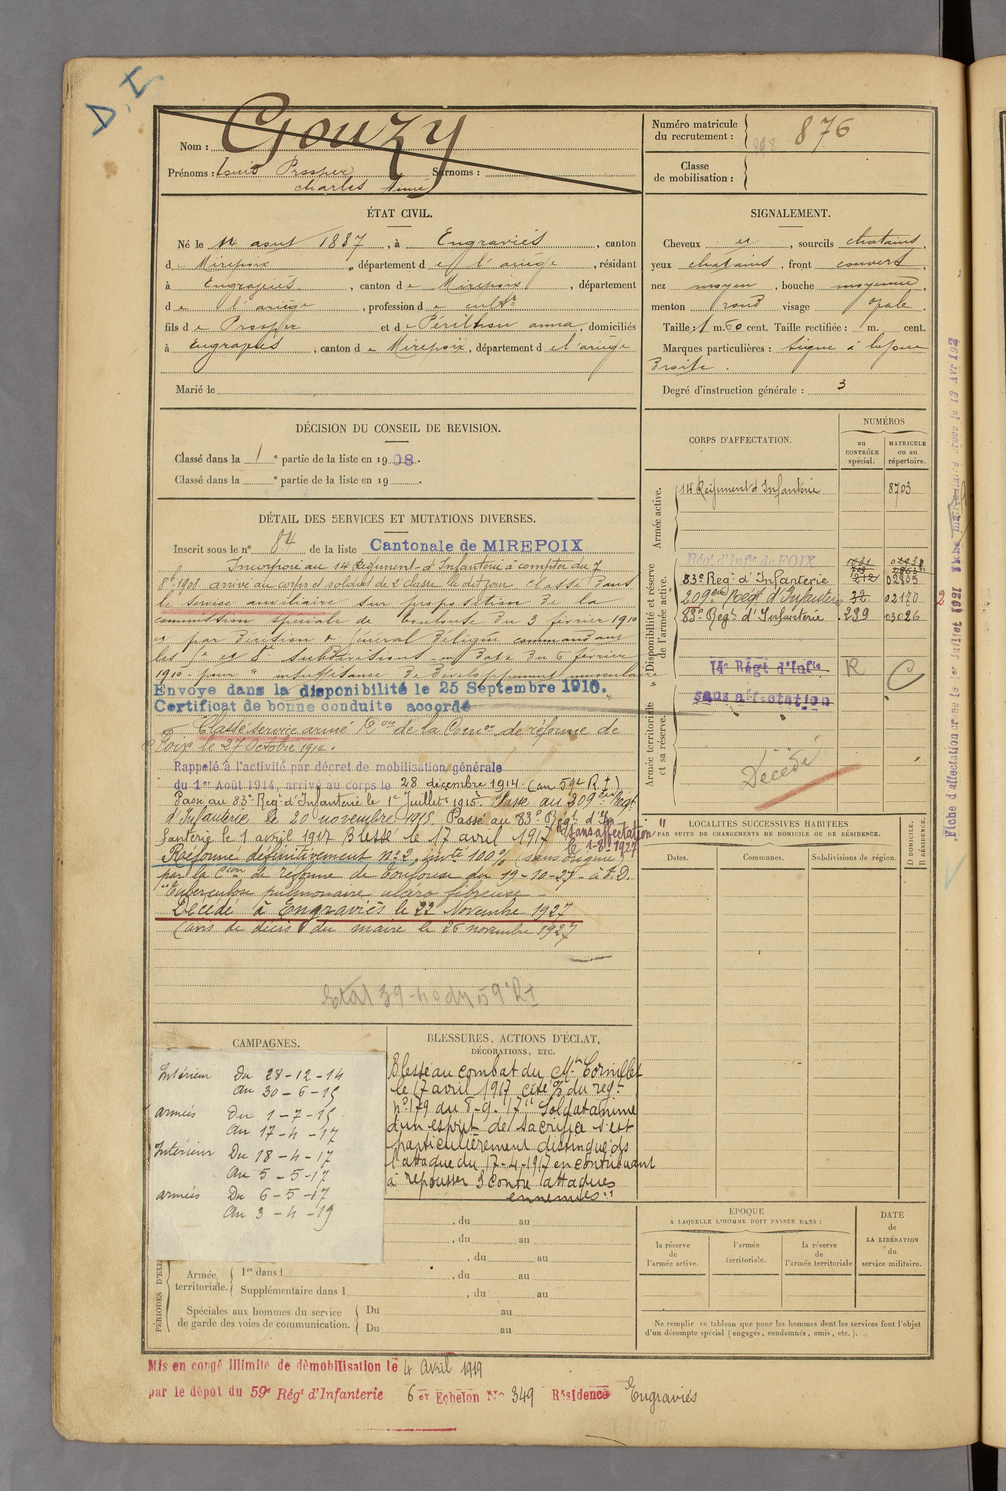 D.I.
Nom : Gouzy
Prénoms : Louis Prosper Surnoms :
Charles Aimé
Numéro matricule
du recrutement : 876
Classe
de mobilisation :
ÉTAT CIVIL.
Né le 14 aout 1887, à Engraviès, canton
de Mirepoix, département de l'ariège, résidant
à Engraviès, canton de Mirepoix, département
de l'ariège, profession de cultr
fils de Prosper et de Périlhou anna, domiciliés
à Engraviès, canton de Mirepoix, département de l'ariège
Marié le
SIGNALEMENT.
Cheveux et, sourcils chatains,
yeux chatains, front couvert,
nez moyen, bouche moyenne,
menton rond visage ovale.
Taille : 1 m. 60 cent. Taille rectifiée : 1 m. cent.
Marques particulières : Signe à la joue
Droite.
Degré d'instruction générale : 3
DÉCISION DU CONSEIL DE REVISION.
Classé dans la 1e partie de la liste en 1908.
Classé dans la e partie de la liste en 19 .
DÉTAIL DES SERVICES ET MUTATIONS DIVERSES.
Inscrit sous le n° 84 de la liste Cantonale de MIREPOIX
Incorporé au 14 Régiment d'Infanterie à compter du 7
8bre 1908. arrivé au corps et soldat de 2 classe le dit jour Classé Dans
le service auxiliaire sur proposition De la
commission spéciale de Toulouse Du 3 février 1910
et par Décision du Général Délégué commandant
les et Subdivisions en Date Du 6 février
1910 pour insuffisance De Développement musculaire
Envoyé dans la disponibilité le 25 Septembre 1910.
Certificat de bonne conduite accordé
Classé service armé Don de la Comon de réforme de
Foix le 27 Octobre 1914.
Rappelé à l'activité par décret de mobilisation générale
du 1er Août 1914, arrivé au corps le 28 décembre 1914 (au 59e RI)
Passé au 83e Régt d'Infanterie le 1er Juillet 1915. Passé au 209ème Régt
d'Infanterie le 20 novembre 1915. Passé au 83e Régt d'In
fanterie le 1 avril 1917 Blessé le 17 avril 1917 "sans affectation"
le 1-8-1927
Réformé définitivement n°2, invté 100% (sans origine)
par la Cion de réforme de Toulouse du 19-10-27 - à t. D.
"Tuberculose pulmonaire ulcéro fibreuse
Décédé à Engraviès le 22 Novembre 1927
(avis de décès du maire le 26 novembre 1927
CORPS D'AFFECTATION.
NUMÉROS
au
CONTRÔLE
spécial.
MATRICULE
ou au
répertoire.
Armée active.
14 Régiment d'Infanterie 8703
Disponibilité et réserve
de l'armée active.
Régt d'Infie de FOIX
83e Régt d'Infanterie 212 02805
209ème Régt d'Infanterie 32 02170
83e Régt d'Infanterie 239 03026
Armée territoriale
et sa réserve.
14e Régt d'Infie R C
sans affectation
Décédé
LOCALITÉS SUCCESSIVES HABITÉES
PAR SUITE DE CHANGEMENTS DE DOMICILE OU DE RÉSIDENCE.
Dates.
Communes.
Subdivisions de région.
D DOMICILE.
R RÉSIDENCE.
CAMPAGNES.
Intérieur Du 28-12-14
au 30-6-15
armées Du 1-7-15
au 17-4-17
Intérieur Du 18-4-17
au 5-5-17
armées Du 6-5-17
au 3-4-19
BLESSURES, ACTIONS D'ÉCLAT,
DÉCORATIONS, ETC.
Blessé au combat du Mt Cornillet
le 17 avril 1917 cité O/ du régt
n°179 du 8-9-17 "Soldat animé
d'un esprit de sacrifice s'est
particulièrement distingué ds
l'attaque du 17-4-1917 en contribuant
à repousser 3 contre attaques
ennemies"
, du au
, du au
, du au
PÉRIODES D'EXE
Armée
territoriale.
1re dans l , du au
Supplémentaire dans l , du au
Spéciales aux hommes du service
de garde des voies de communication.
Du au
Du au
EPOQUE
À LAQUELLE L'HOMME DOIT PASSER DANS :
la réserve
de
l'armée active.
l'armée
territoriale.
la réserve
de
l'armée territoriale
DATE
de
LA LIBÉRATION
du
service militaire.
Ne remplir ce tableau que pour les hommes dont les services font l'objet
d'un décompte spécial (engagés, condamnés, omis, etc.).
Mis en congé illimité de démobilisation le 4 Avril 1919
par le dépôt du 59e Régt d'Infanterie 6 et Echelon No 349 Résidence Engraviès